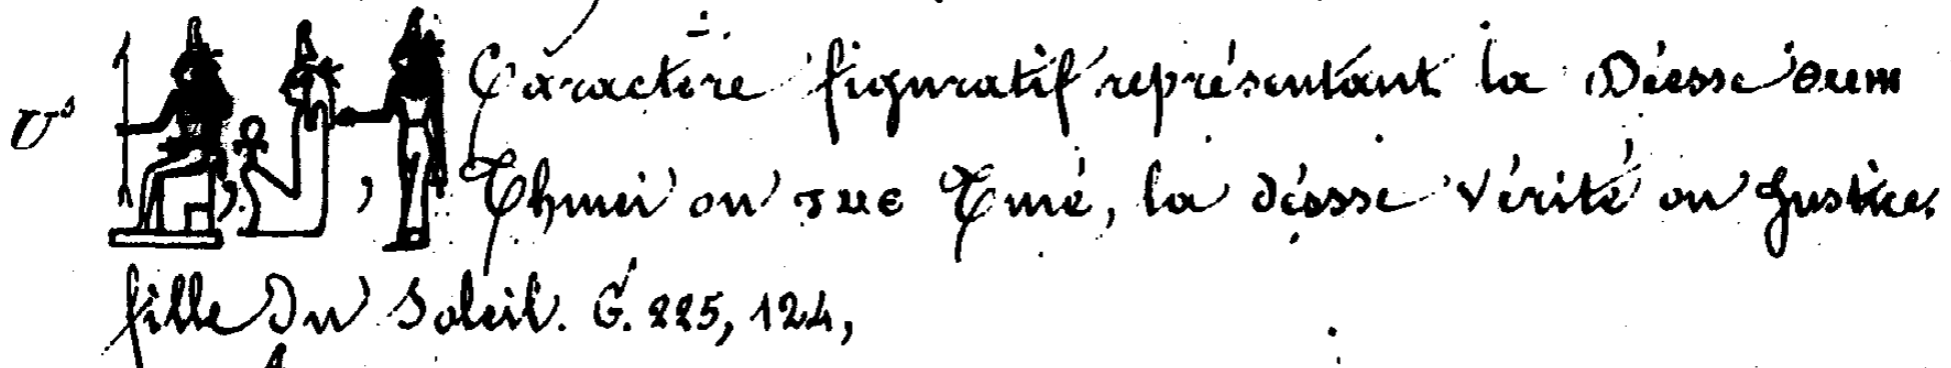 Vs Caractère figuratif représentant la Déesse ⲑⲙⲏⲓ
Thmei ou ⲧⲙⲉ Tmé, la déesse Vérité ou Justice,
fille du Soleil. G. 225, 124,